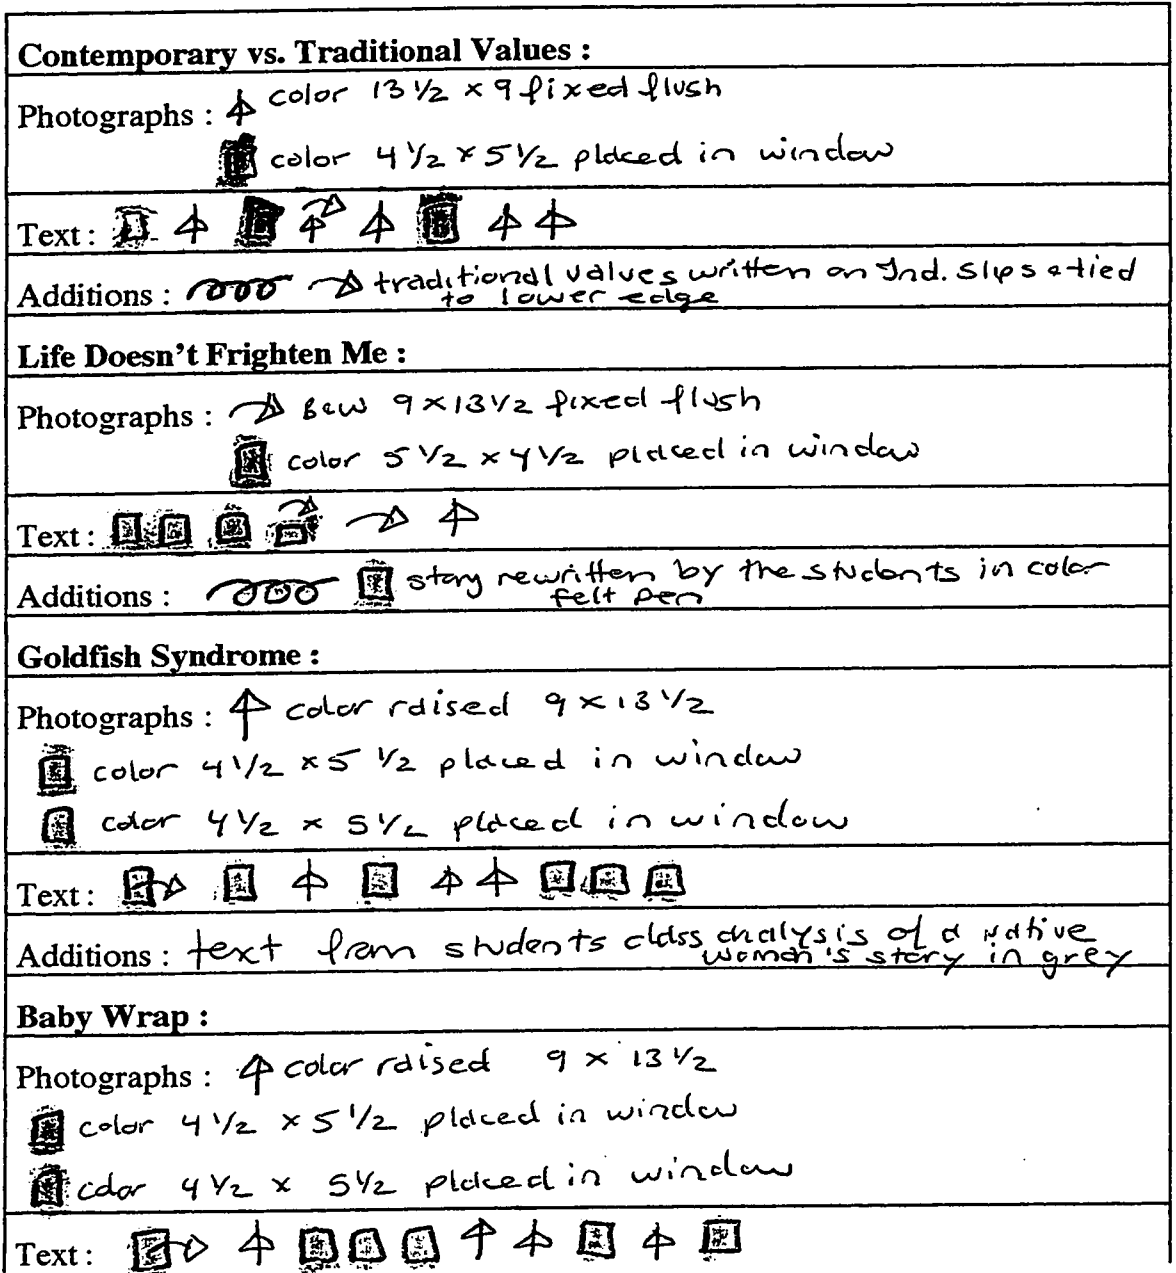 Contemporary vs. Traditional Values :
Photographs : color 13 1/2 x 9 fixed flush
color 4 1/2 x 5 1/2 placed in window
Text :
Additions : traditional values written on Ind. slips & tied
to lower edge
Life Doesn't Frighten Me :
Photographs : B&W 9 x 13 1/2 fixed flush
color 5 1/2 x 4 1/2 placed in window
Text :
Additions : story rewritten by the students in color
felt pen
Goldfish Syndrome :
Photographs : color raised 9 x 13 1/2
color 4 1/2 x 5 1/2 placed in window
color 4 1/2 x 5 1/2 placed in window
Text :
Additions : text from students class analysis of a native
woman's story in grey
Baby Wrap :
Photographs : color raised 9 x 13 1/2
color 4 1/2 x 5 1/2 placed in window
color 4 1/2 x 5 1/2 placed in window
Text :